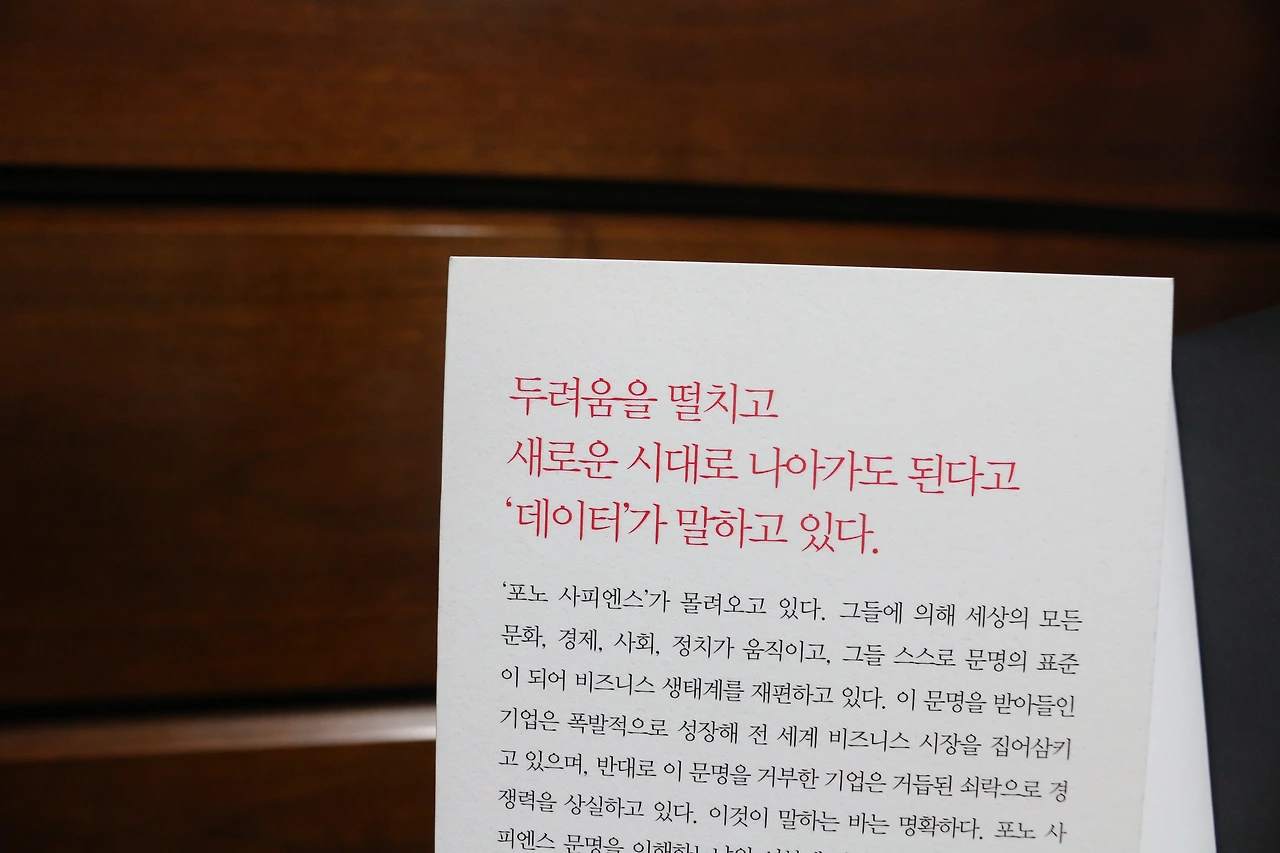 두려움을 떨치고
새로운 시대로 나아가도 된다고
‘데이터’가 말하고 있다.
‘포노 사피엔스’가 몰려오고 있다. 그들에 의해 세상의 모든
문화, 경제, 사회, 정치가 움직이고, 그들 스스로 문명의 표준
이 되어 비즈니스 생태계를 재편하고 있다. 이 문명을 받아들인
기업은 폭발적으로 성장해 전 세계 비즈니스 시장을 집어삼키
고 있으며, 반대로 이 문명을 거부한 기업은 거듭된 쇠락으로 경
쟁력을 상실하고 있다. 이것이 말하는 바는 명확하다. 포노 사
피엔스 문명을